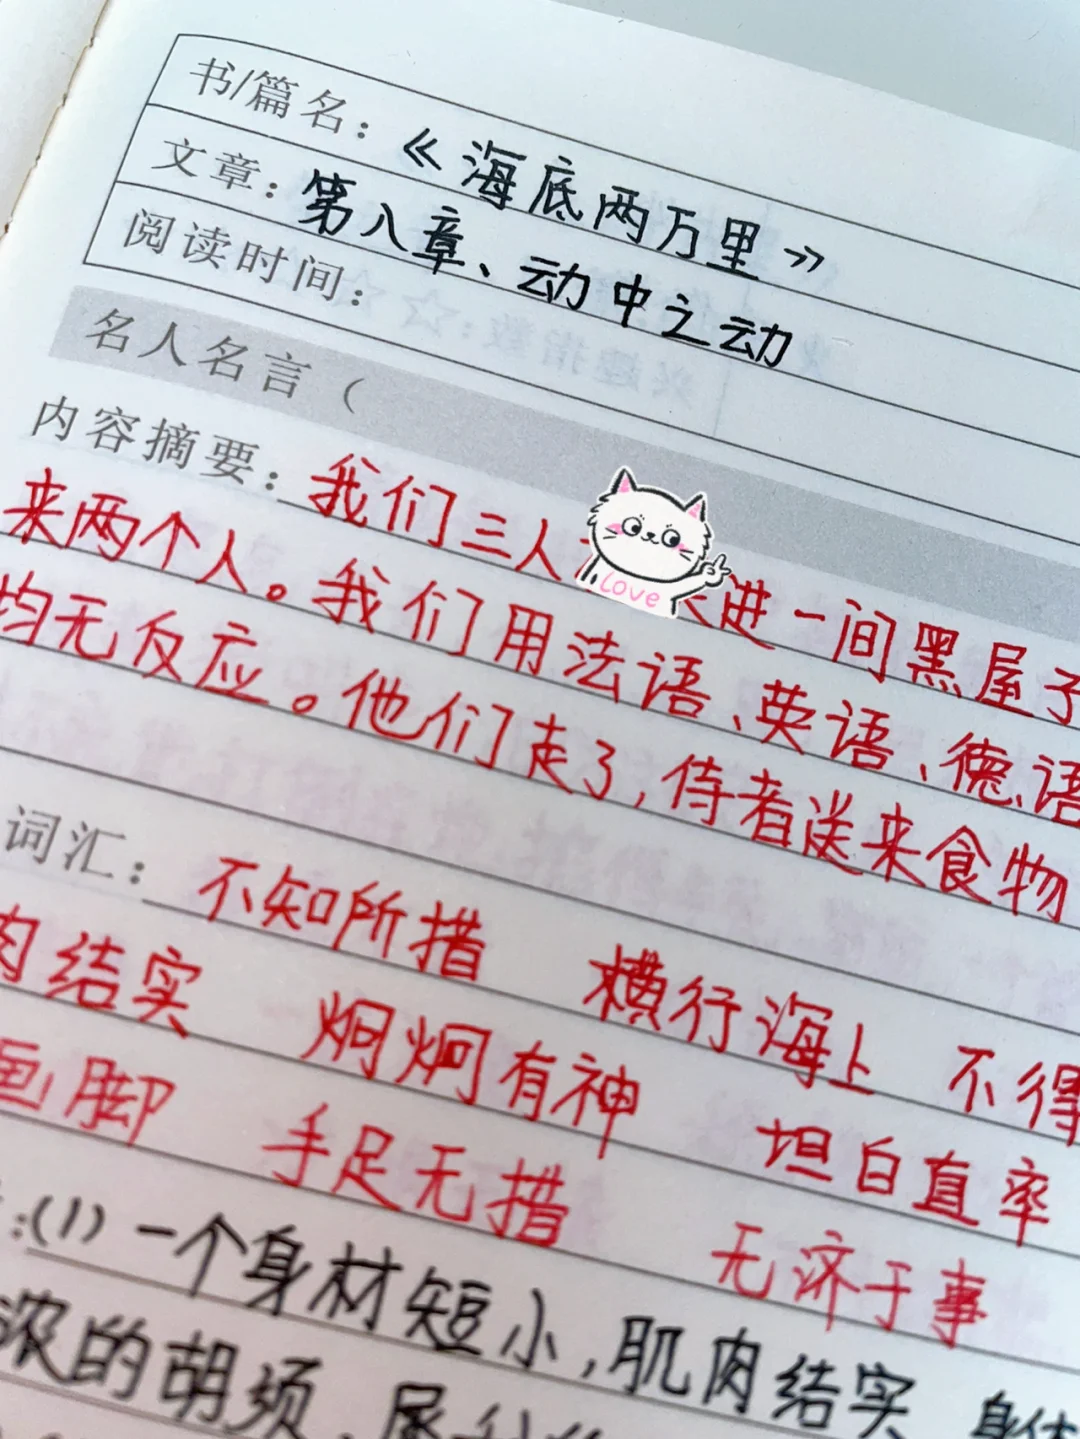 书/篇名：《海底两万里》
文章：第八章、动中之动
阅读时间：
名人名言（
内容摘要：我们三人 进一间黑屋子
来两个人。我们用法语、英语、德语
均无反应。他们走了，侍者送来食物
词汇：不知所措 横行海上 不得
肉结实 炯炯有神 坦白直率
画脚 手足无措 无济于事
：(1)一个身材短小，肌肉结实 身体
浓的胡须
love